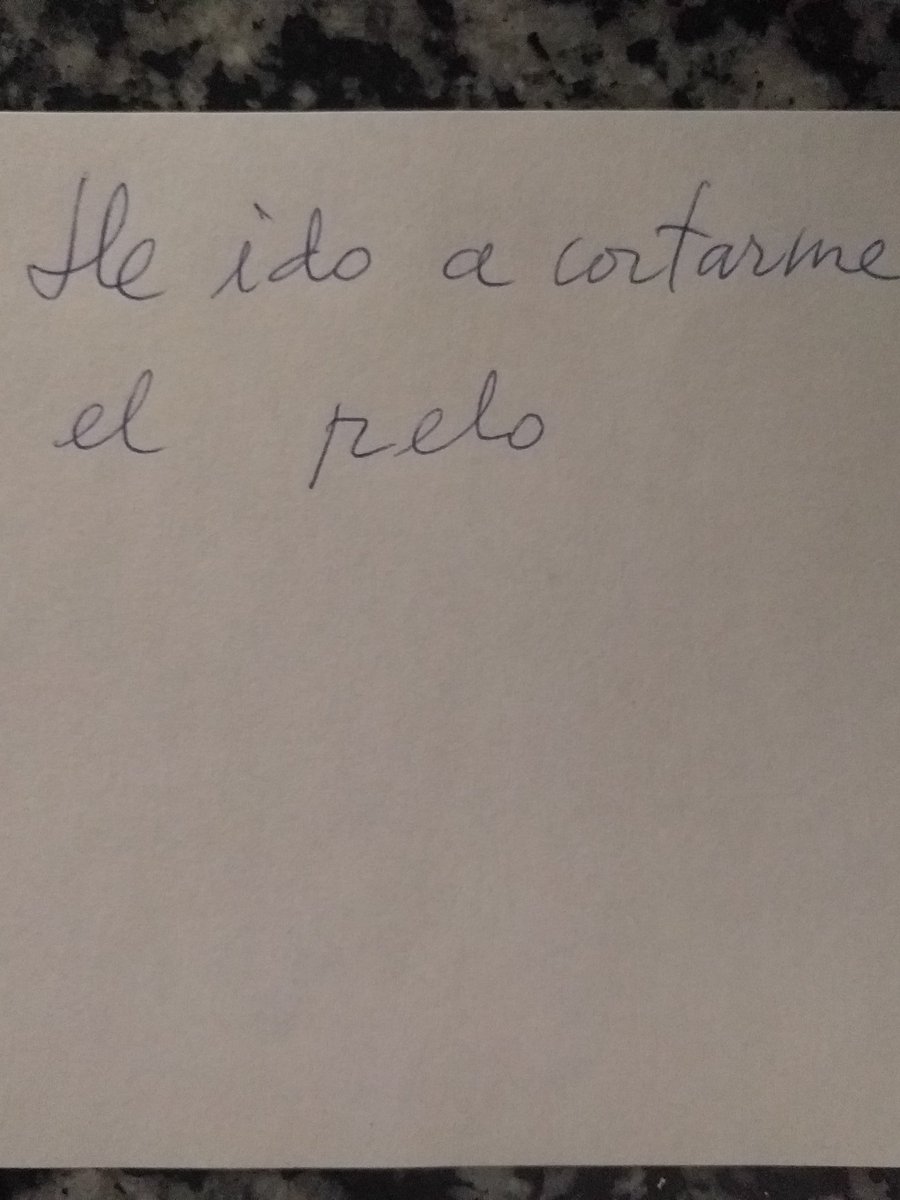 He ido a cortarme
el pelo